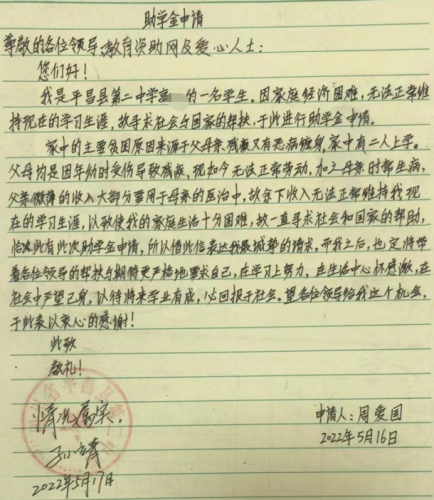 助学金申请
尊敬的各位领导、教育资助网及爱心人士:
您们好!
我是平昌县第二中学高 的一名学生。因家庭经济困难,无法正常维
持现在的学习生涯,故寻求社会与国家的帮扶,于此进行助学金申请。
家中的主要贫困原因来源于父母亲残疾又有恶病缠身,家中有二人上学。
父母均是因年幼时受伤导致残疾,现如今无法正常劳动,加之母亲时常生病,
父亲微薄的收入大部分要用于母亲的医治中,故余下收入无法正常维持我现
在的学习生涯,以致使我的家庭生活十分困难,故一直寻求社会和国家的帮助,
临此有此次助学金申请,所以借此信表达我最诚挚的请求。而我之后,也定将带
着各位领导的帮扶与期待更严格地要求自己,在学习上努力,在生活中心怀感激,在
社会中严望己身,以待将来学业有成,必回报于社会。望各位领导给我这个机会,
于此表以衷心的感谢!
此致
敬礼!
情况属实.
申请人:周爱国
2022年5月16日
2022年5月17日